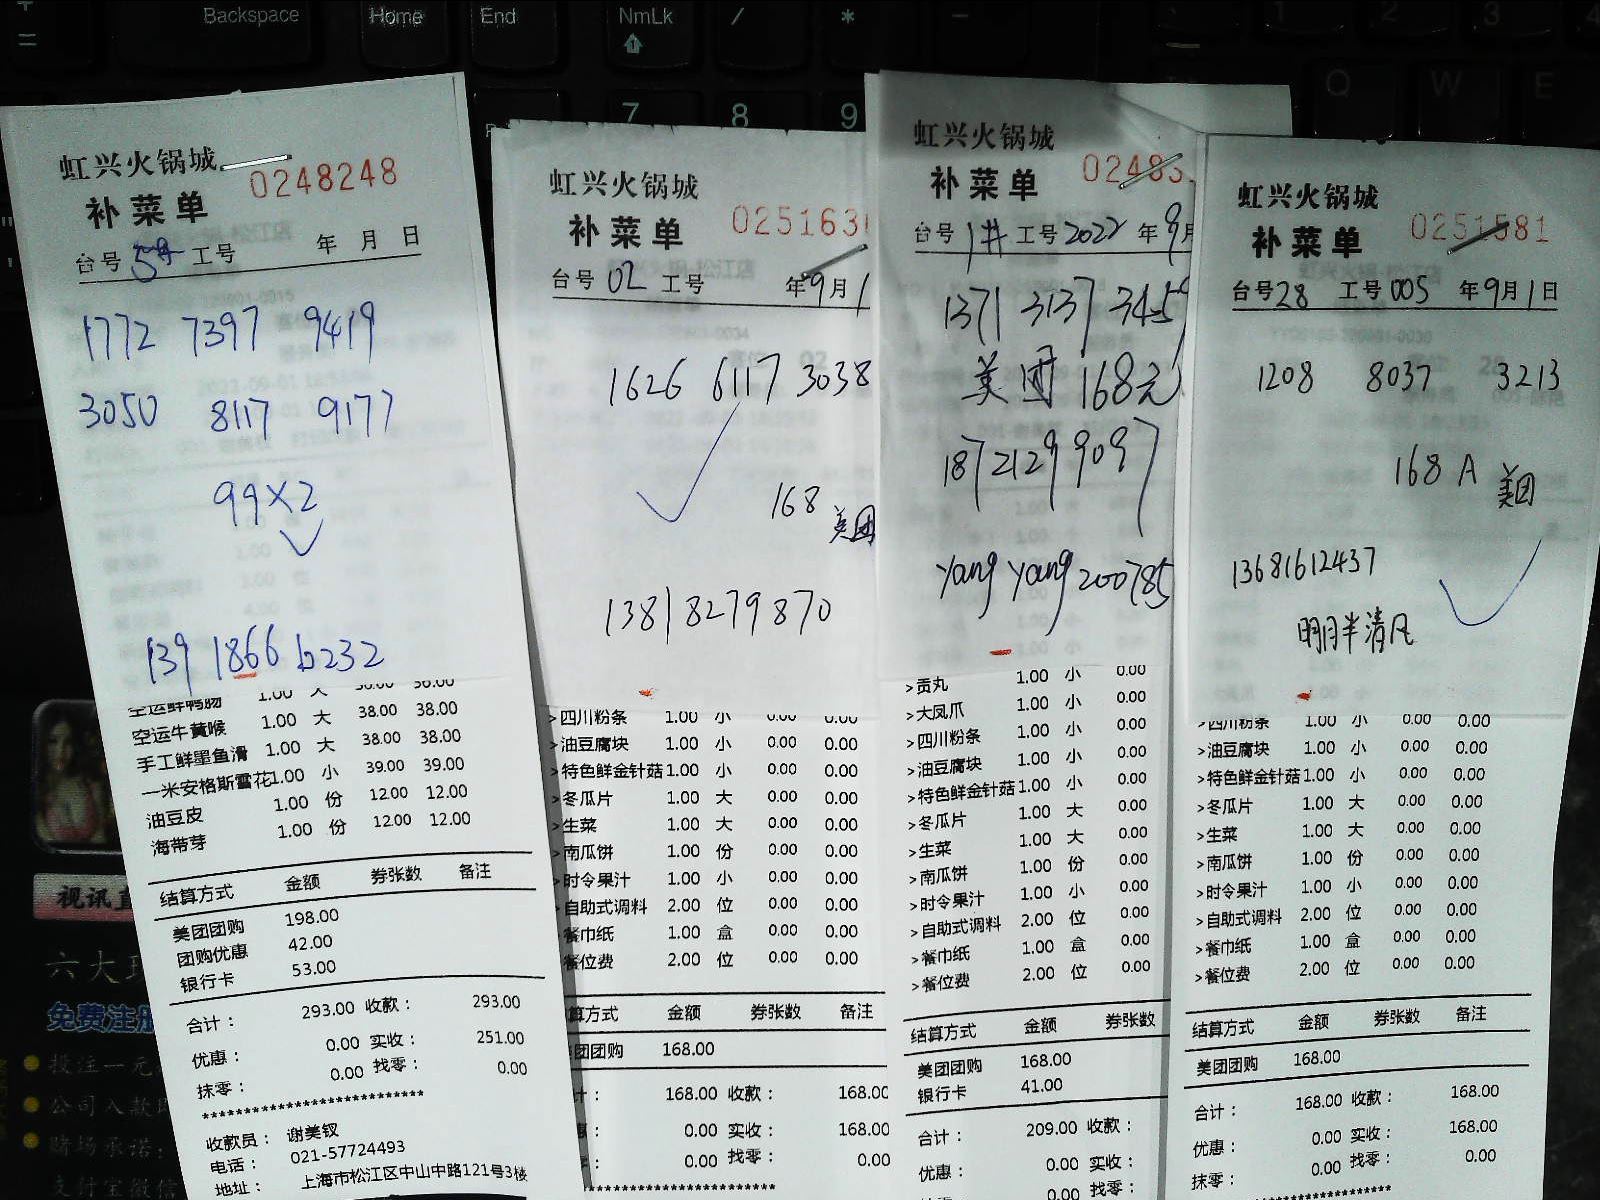 Backspace
Home
End
NmLk
/
*
7
8
9
Q
W
E
虹兴火锅城
0248248
补菜单
台号 工号 年 月 日
1772 7397 9419
3050 8117 9177
99×2
139 1866 6232
空运鲜鸭肠 1.00 大 36.00 36.00
空运牛黄喉 1.00 大 38.00 38.00
手工鲜墨鱼滑 1.00 大 38.00 38.00
一米安格斯雪花 1.00 小 39.00 39.00
油豆皮 1.00 份 12.00 12.00
海带芽 1.00 份 12.00 12.00
结算方式 金额 券张数 备注
美团团购 198.00
团购优惠 42.00
银行卡 53.00
合计： 293.00 收款： 293.00
优惠： 0.00 实收： 251.00
抹零： 0.00 找零： 0.00
**************************
收款员： 谢美钗
电话： 021-57724493
地址： 上海市松江区中山中路121号3楼
虹兴火锅城
补菜单
025163
台号 02 工号 年 9月1
1626 6117 3038
168 美团
13818279870
>四川粉条 1.00 小 0.00 0.00
>油豆腐块 1.00 小 0.00 0.00
>特色鲜金针菇 1.00 小 0.00 0.00
>冬瓜片 1.00 大 0.00 0.00
>生菜 1.00 大 0.00 0.00
>南瓜饼 1.00 份 0.00 0.00
>时令果汁 1.00 小 0.00 0.00
>自助式调料 2.00 位 0.00 0.00
>餐巾纸 1.00 盒 0.00 0.00
>餐位费 2.00 位 0.00 0.00
算方式 金额 券张数 备注
团团购 168.00
计： 168.00 收款： 168.00
惠： 0.00 实收： 168.00
0.00 找零： 0.00
虹兴火锅城
02483
补菜单
台号 1# 工号 2022 年 9月
1371 3137 345
美团 168元
1872129 9097
yang yang 200785
>贡丸 1.00 小 0.00
>大凤爪 1.00 小 0.00
>四川粉条 1.00 小 0.00
>油豆腐块 1.00 小 0.00
>特色鲜金针菇 1.00 小 0.00
>冬瓜片 1.00 大 0.00
>生菜 1.00 大 0.00
>南瓜饼 1.00 份 0.00
>时令果汁 1.00 小 0.00
>自助式调料 2.00 位 0.00
>餐巾纸 1.00 盒 0.00
>餐位费 2.00 位 0.00
结算方式 金额 券张数
美团团购 168.00
银行卡 41.00
合计： 209.00 收款：
优惠： 0.00 实收：
0.00 找零：
虹兴火锅城
补菜单
0251581
台号 28 工号 005 年 9月1日
1208 8037 3213
168 A 美团
13681612437
明月半清风
>四川粉条 1.00 小 0.00 0.00
>油豆腐块 1.00 小 0.00 0.00
>特色鲜金针菇 1.00 小 0.00 0.00
>冬瓜片 1.00 大 0.00 0.00
>生菜 1.00 大 0.00 0.00
>南瓜饼 1.00 份 0.00 0.00
>时令果汁 1.00 小 0.00 0.00
>自助式调料 2.00 位 0.00 0.00
>餐巾纸 1.00 盒 0.00 0.00
>餐位费 2.00 位 0.00 0.00
结算方式 金额 券张数 备注
美团团购 168.00
合计： 168.00 收款： 168.00
优惠： 0.00 实收： 168.00
抹零： 0.00 找零： 0.00
视讯
六大
免费注册
投注一元
公司入款
赌场承诺：
支付宝微信